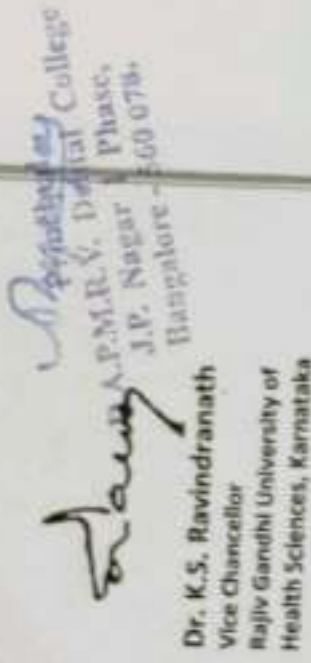 A.P.M.R.V. Dental College
J.P. Nagar I Phase,
Bangalore - 560 078.
Dr. K.S. Ravindranath
Vice Chancellor
Rajiv Gandhi University of
Health Sciences, Karnataka